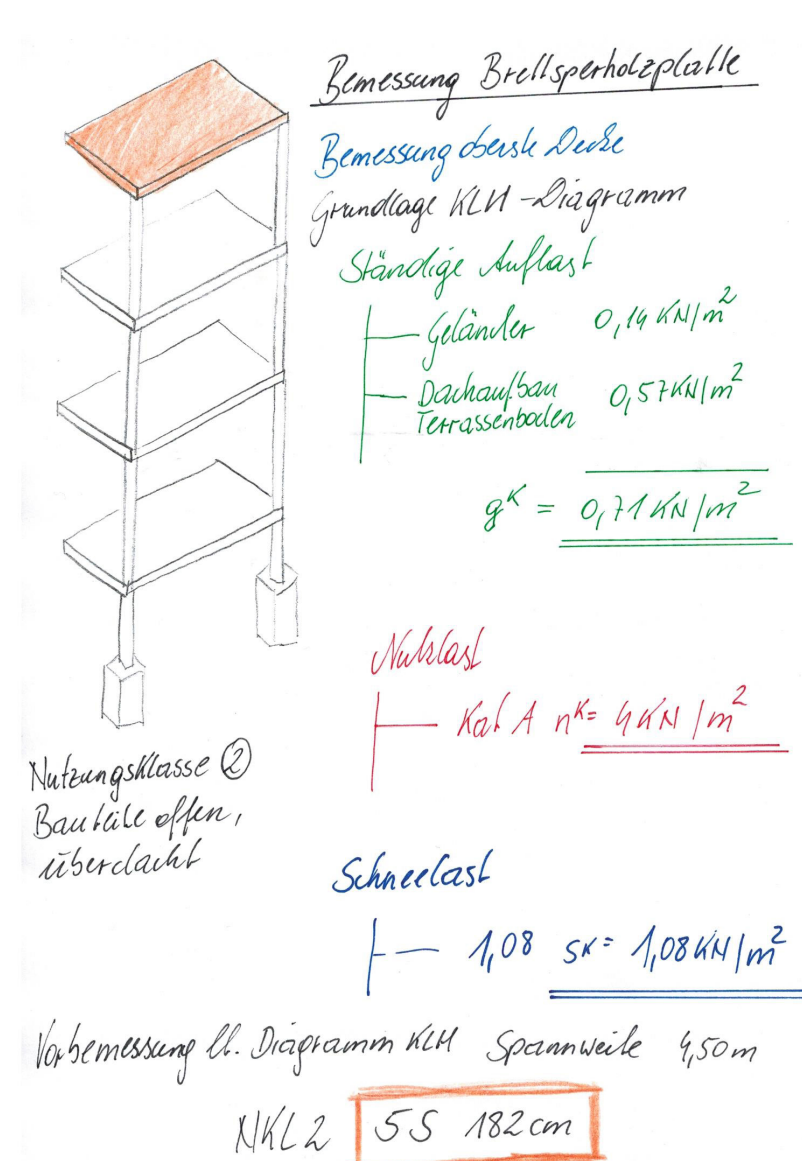 Bemessung Brettsperholzplatte
Bemessung oberste Decke
Grundlage KLH-Diagramm
Ständige Auflast
Geländer 0,14 KN/m²
Dachaufbau 0,57 KN/m²
Terrassenboden
gᴷ = 0,71 KN/m²
Nutzlast
Kat A nᴷ= 4 KN/m²
Nutzungsklasse ②
Bauteile offen,
überdacht
Schneelast
1,08 sᴷ= 1,08 KN/m²
Vorbemessung lt. Diagramm KLH Spannweite 4,50m
NKL2 5S 182cm